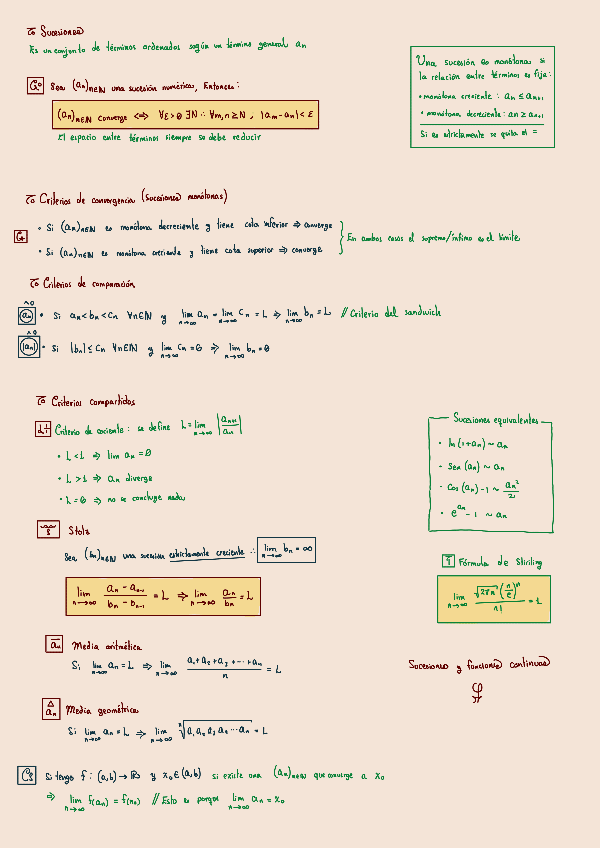 Sucesiones
Es un conjunto de términos ordenados según un término general aₙ
Una sucesión es monótona si
la relación entre términos es fija:
• monótona creciente : aₙ ≤ aₙ₊₁
• monótona decreciente : aₙ ≥ aₙ₊₁
Si es estrictamente se quita el =
Sea (aₙ)ₙ∈ℕ una sucesión numérica, Entonces:
(aₙ)ₙ∈ℕ converge ⟺ ∀ε>0 ∃N ∴ ∀m,n ≥ N , |aₘ-aₙ| < ε
El espacio entre términos siempre se debe reducir
Criterios de convergencia (Sucesiones monótonas)
• Si (aₙ)ₙ∈ℕ es monótona decreciente y tiene cota inferior ⇒ converge
• Si (aₙ)ₙ∈ℕ es monótona creciente y tiene cota superior ⇒ converge
} En ambos casos el supremo/ínfimo es el límite
Criterios de comparación
^0 aₙ • Si aₙ < bₙ < cₙ ∀n∈ℕ y lim n→∞ aₙ = lim n→∞ cₙ = L ⇒ lim n→∞ bₙ = L // Criterio del sandwich
^0 |aₙ| • Si |bₙ| ≤ cₙ ∀n∈ℕ y lim n→∞ cₙ = 0 ⇒ lim n→∞ bₙ = 0
Criterios compartidos
Criterio de cociente : se define L = lim n→∞ |aₙ₊₁/aₙ|
• L < 1 ⇒ lim aₙ = 0
• L > 1 ⇒ aₙ diverge
• L = 0 ⇒ no se concluye nada
Sucesiones equivalentes
• ln(1+aₙ) ~ aₙ
• Sen(aₙ) ~ aₙ
• Cos(aₙ) - 1 ~ aₙ²/2
• e^aₙ - 1 ~ aₙ
Stolz
Sea (bₙ)ₙ∈ℕ una sucesión estrictamente creciente ∴ lim n→∞ bₙ = ∞
lim n→∞ (aₙ - aₙ₋₁)/(bₙ - bₙ₋₁) = L ⇒ lim n→∞ aₙ/bₙ = L
Fórmula de Stirling
lim n→∞ √2πn (n/e)ⁿ / n! = 1
āₙ Media aritmética
Si lim n→∞ aₙ = L ⇒ lim n→∞ (a₁+a₂+a₃+...+aₙ)/n = L
aₙ Media geométrica
Si lim n→∞ aₙ = L ⇒ lim n→∞ ⁿ√a₁ a₂ a₃ ... aₙ = L
Sucesiones y funciones continuas
Si tengo f : (a,b) → ℝ y x₀∈(a,b) si existe una (aₙ)ₙ∈ℕ que converge a x₀
⇒ lim n→∞ f(aₙ) = f(x₀) // Esto es porque lim n→∞ aₙ = x₀